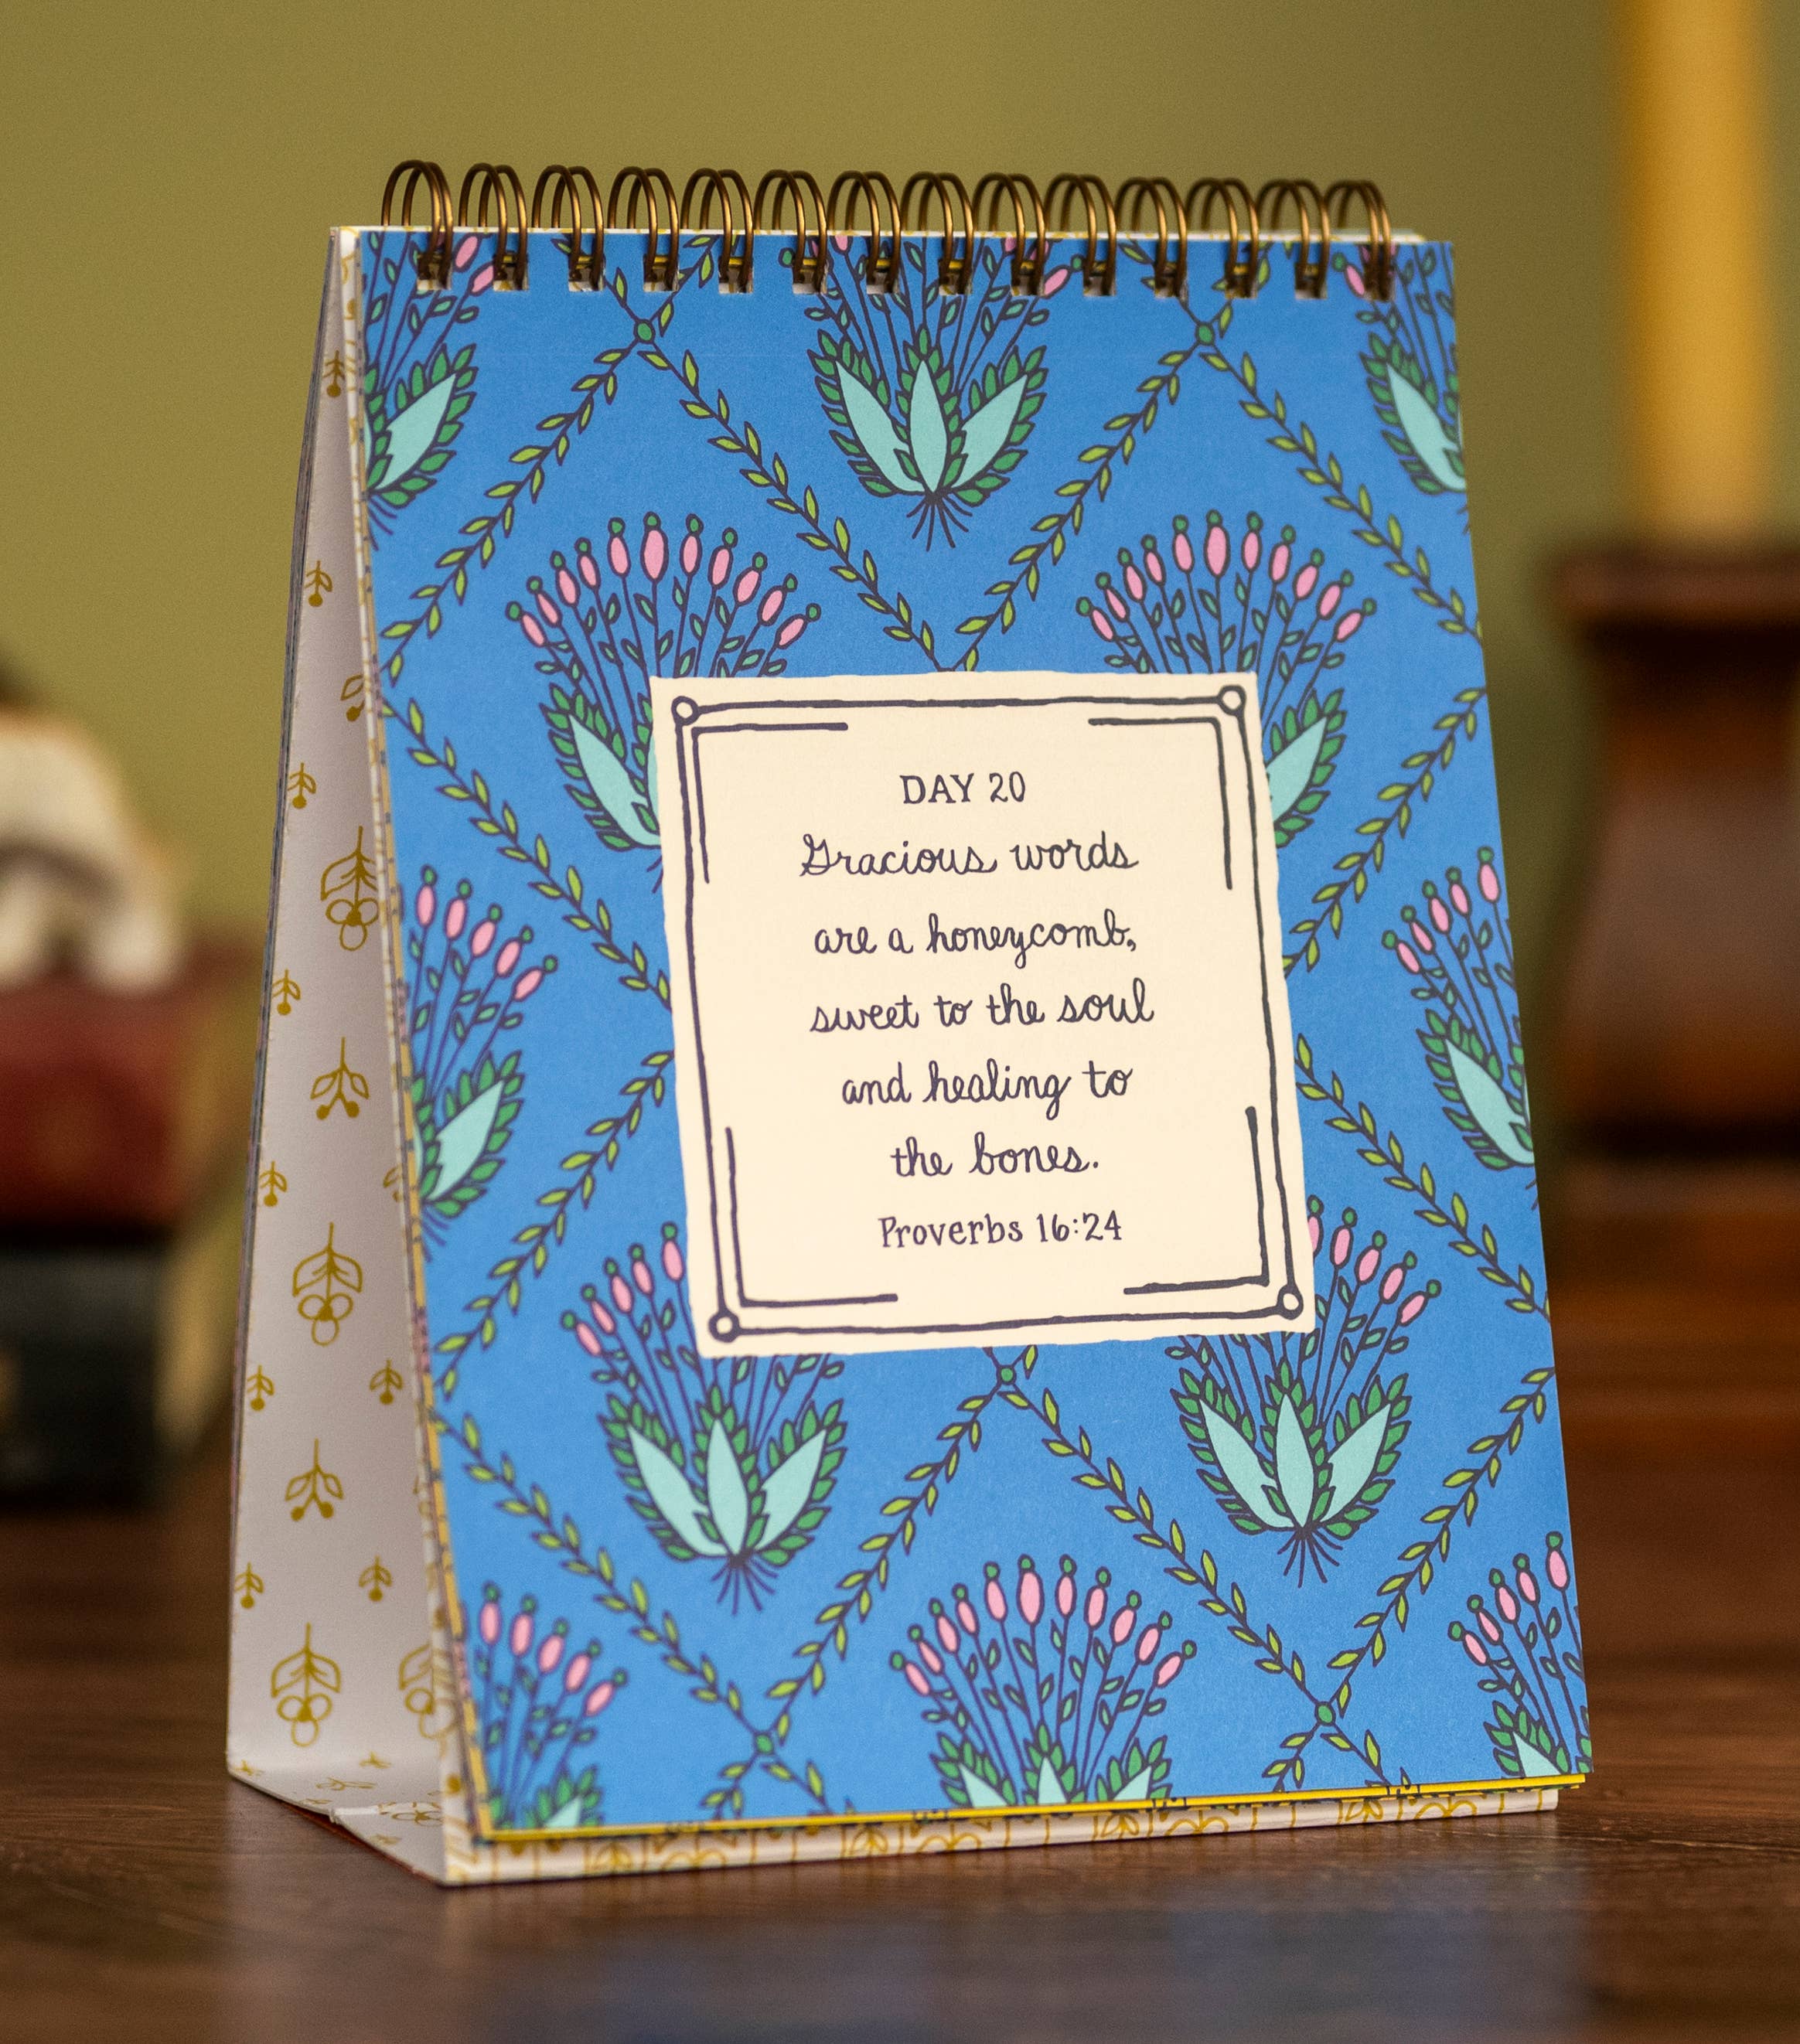 DAY 20
Gracious words
are a honeycomb,
sweet to the soul
and healing to
the bones.
Proverbs 16:24